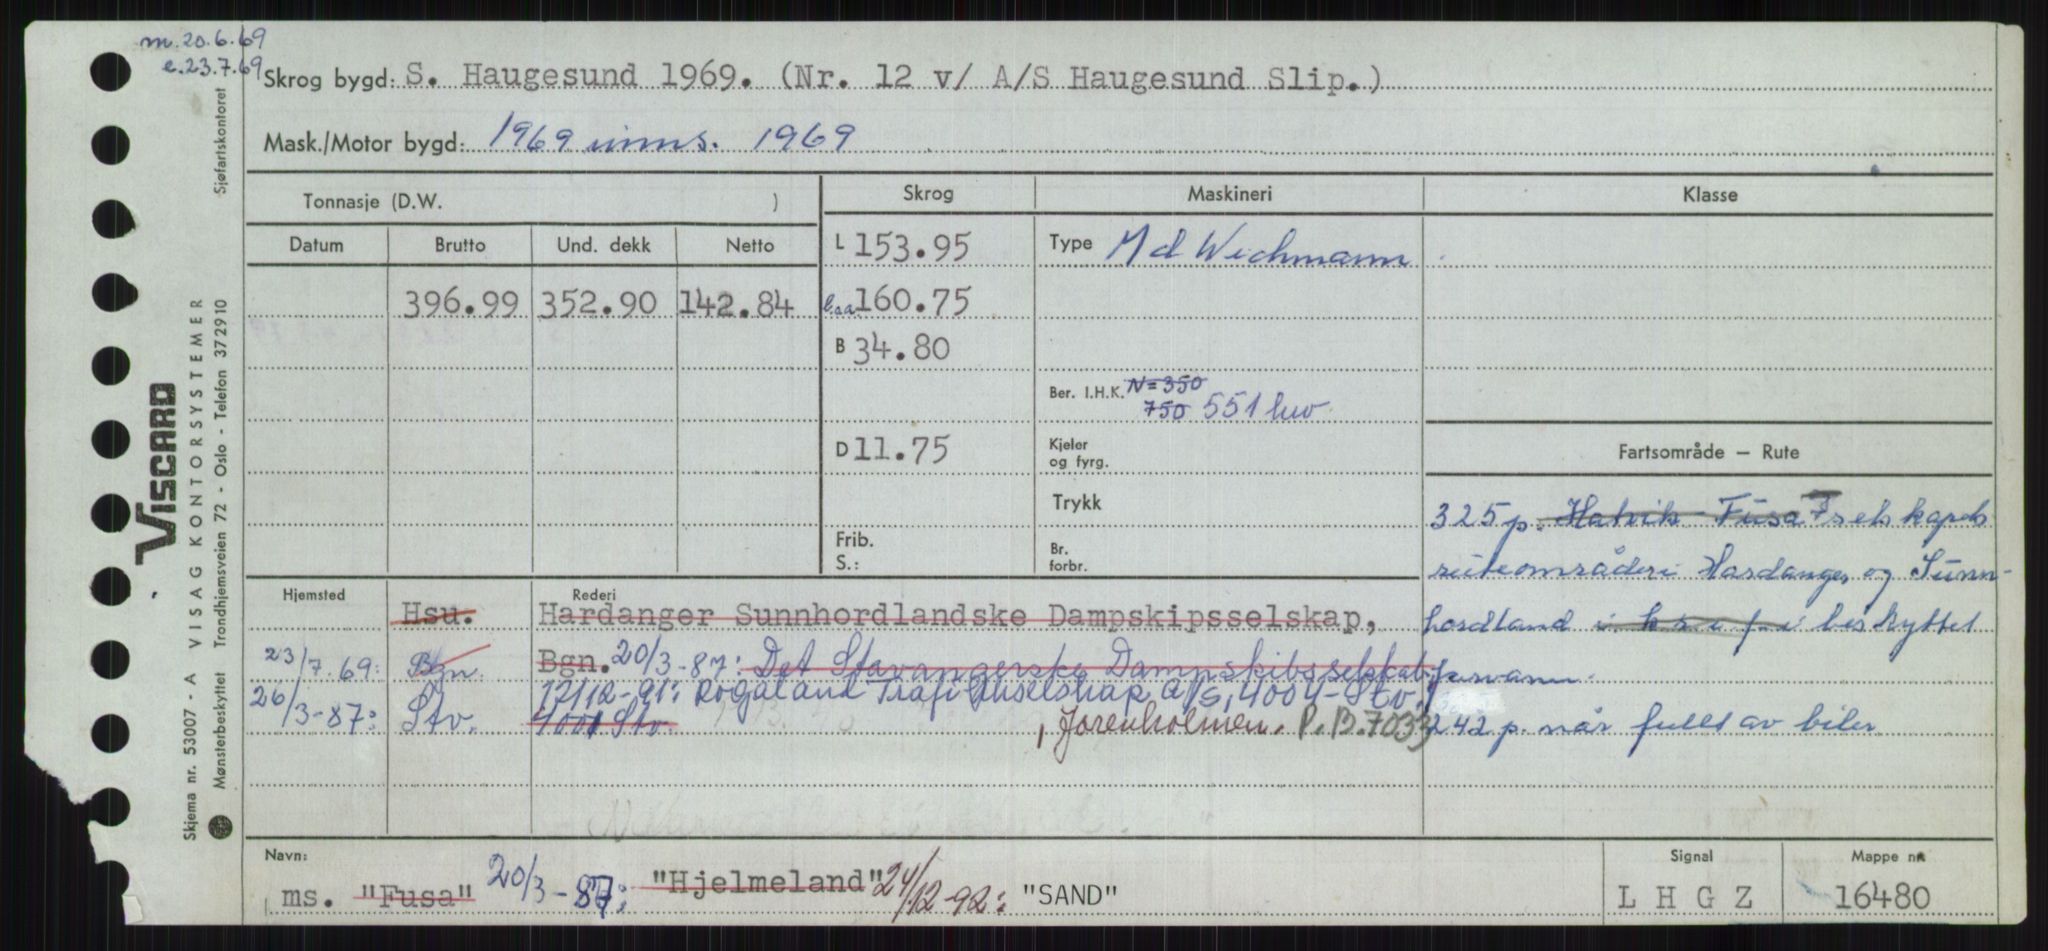 m. 20.6.69
e. 23.7.69
Skrog bygd: S. Haugesund 1969. (Nr. 12 v/ A/S Haugesund Slip.)
Mask./Motor bygd: 1969 inns. 1969
Tonnasje (D.W. )
Skrog
Maskineri
Klasse
Datum
Brutto
Und. dekk
Netto
396.99
352.90
142.84
L 153.95
l.o.a. 160.75
B 34.80
D 11.75
Frib.
S.:
Type Md Wichmann
Ber. I.H.K. N=350
750 551 kw
Kjeler
og fyrg.
Trykk
Br.
forbr.
Fartsområde — Rute
325 p. Hatvik - Fusa Selskapets
ruteområde i Hardanger og Sunn-
hordland i beskyttet
farvann.
242 p. når fullt av biler
Hjemsted
Rederi
Hsu.
Hardanger Sunnhordlandske Dampskipsselskap,
23/7.69: Bgn.
Bgn. 20/3-87: Det Stavangerske Dampskibsselskab,
12/12-91: Rogaland Trafikkselskap A/S, 4004-Stv.
26/3-87: Stv.
4001 Stv.
, Jorenholmen. P.B. 7033
Navn:
ms. "Fusa" 20/3-87: "Hjelmeland" 24/12-92: "SAND"
Signal
L H G Z
Mappe nr.
16480
VISCARD
VISAG KONTORSYSTEMER
Sjøfartskontoret
Skjema nr. 53007 - A
Mønsterbeskyttet Trondhjemsveien 72 - Oslo - Telefon 372910